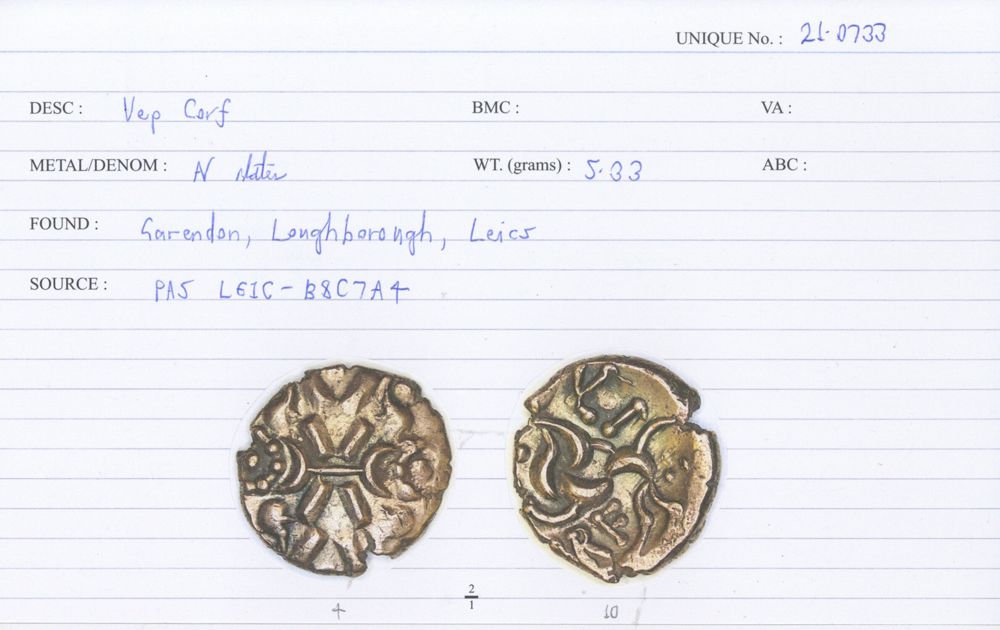 UNIQUE No. : 21·0733
DESC : Vep Corf BMC : VA :
METAL/DENOM : N stater WT. (grams) : 5·33 ABC :
FOUND : Garendon, Loughborough, Leics
SOURCE : PAS LEIC-B8C7A4
2
1
4 10